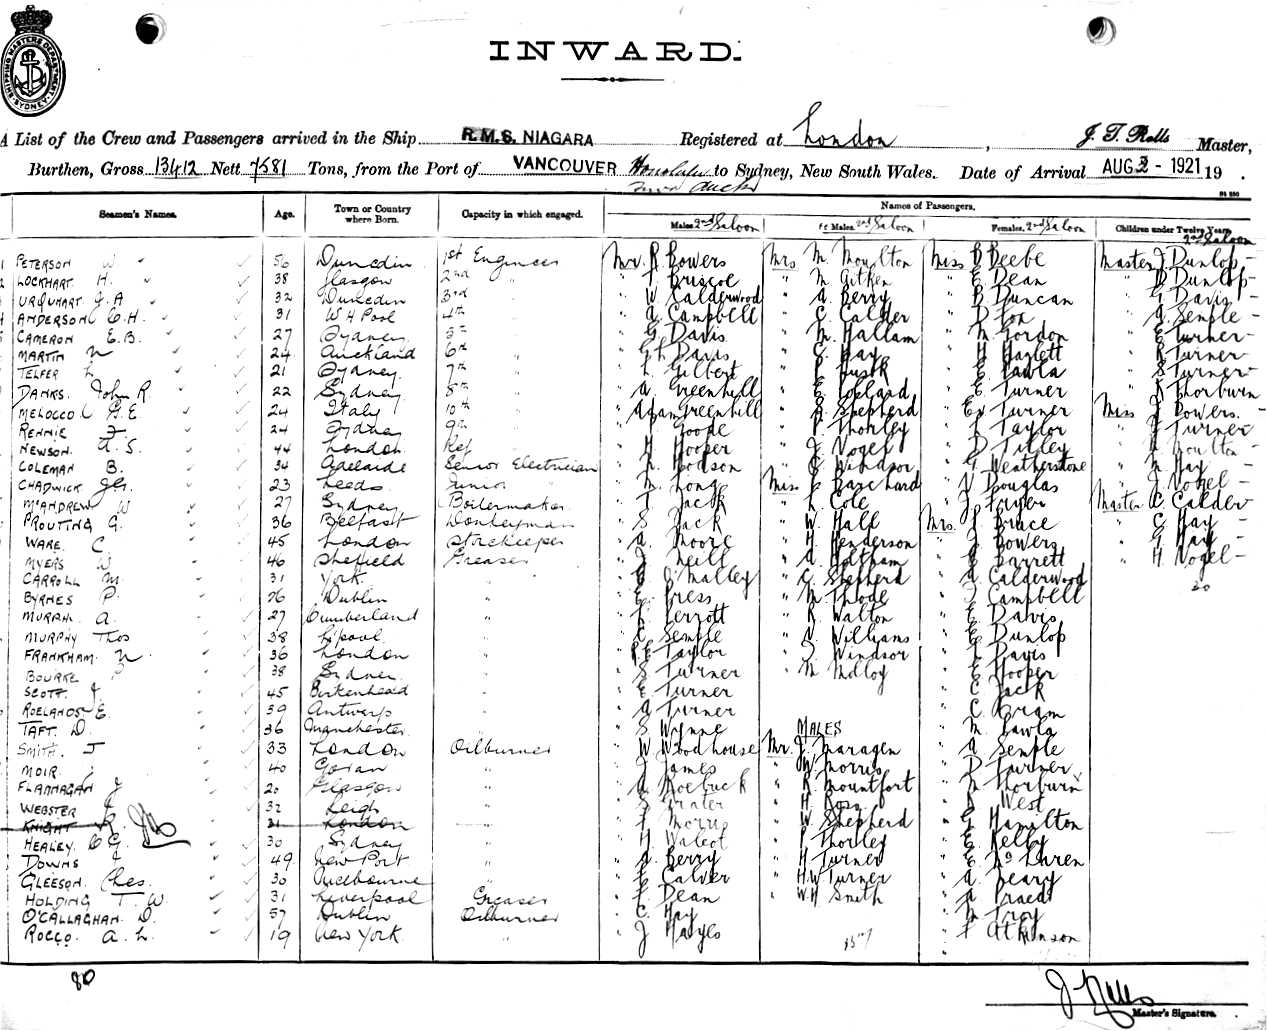 SHIPPING MASTERS DEPARTMENT SYDNEY
INWARD.
A List of the Crew and Passengers arrived in the Ship R.M.S. NIAGARA Registered at London, J. T. Rolls Master,
Burthen, Gross 13412 Nett 7581 Tons, from the Port of VANCOUVER Honolulu to Sydney, New South Wales. Date of Arrival AUG 2 - 1921 19 .
Seamen's Names. Age. Town or Country where Born. Capacity in which engaged. Names of Passengers.
Males 2nd Saloon Males. 2nd Saloon Females. 2nd Saloon Children under Twelve Years 2nd Saloon
PETERSON W 56 Dunedin 1st Engineer Mr. R Bowers Mrs M. Moulton Miss B Beebe Master J Dunlop -
LOCKHART H. 38 Glasgow 2nd " " Briscoe " M Aitken " E Dean " Dunlop -
URQUHART J. A 32 Dunedin 3rd " " W Calderwood " A Berry " B Duncan " G Davis -
ANDERSON C. H. 31 W H Pool 4th " " A Campbell " C Calder " D Fox " A Semple -
CAMERON E. B. 27 Sydney 5th " " G Davis " M Hallam " M Gordon " E Turner -
MARTIN N 24 Auckland 6th " " G H Davis " C Hay " H Hazlett " R Turner -
TELFER L 21 Sydney 7th " " L Gilbert " Lusk " E Lawla " S Turner -
DANKS. John R. 22 Sydney 8th " " A Greenhill " E Lockard " E Turner " Thorburn
MELOCCO G. E. 24 Italy 10th " " Adam Greenhill " R Shepherd " E V Turner Miss J Bowers. -
RENNIE J. 24 Sydney 9th " Goode " P Thorley " L Taylor " J Turner
NEWSON. A. S. 44 London Ref " " H Hooper " J Vogel " D Tilley " Moulton -
COLEMAN B. 34 Adelaide Senior Electrician " L Hodson " C Windsor " G Weatherstone " M Hay -
CHADWICK 23 Leeds Junior " " M Long Miss L Barchard " V Douglas " J Vogel -
McANDREW W 27 Sydney Boilermaker " J Jack " L Cole " J Fryer Master C Calder
PROUTING G. 36 Belfast Donkeyman " S Jack " W Hall Mrs. J Bruce " C Hay -
WARE. C 45 London Storekeeper " A Moore " H Henderson " J Bowers " G Hay -
MYERS W 46 Sheffield Greaser " J Neill " A Haltham " E Barrett " H Vogel -
CARROLL M 31 York. " " C O'Malley " C Shepherd " A Calderwood
20
BYRNES P. 26 Dublin " " E Press " M Thode " J Campbell
MURPH. A. 27 Cumberland " " L Perrott " R Walton " E Davis
MURPHY Thos 38 L'pool " " C Semple " V Williams " E Dunlop
FRANKHAM. N 36 London " " P. E. Taylor " J Windsor " L Davis
BOURKE 38 Sydney " " S Turner " M Molloy " E Hooper
SCOTT. J 45 Birkenhead " " E Turner " C Jack
ROELANDS E 39 Antwerp " " A Turner " C Bram
TAFT. D. 36 Manchester " " S Wynne MALES " M Lawla
SMITH. J 33 London Oilburner " W Woodhouse Mr. J. Maragen " A Semple
MOIR. 40 Govan " " J James " W Morris " D Turner
FLANNAGAN J 20 Glasgow " " A Roebuck " R Mountfort " M Thorburn
WEBSTER J 32 Leigh " " S Frater " H Ross " R West
KNIGHT R. 31 London " " J Morris " W Shepherd " G Hamilton
HEALEY. C G. 30 Sydney " " H Walcot " P Thorley " E Kelby
DOWNS J 49 New Port " " A Berry " H Turner " E McLaren
GLEESON. Chas. 30 Melbourne " " E Calver " H.W Turner " A Peary
HOLDING T. W. 31 Liverpool Greaser " E Dean " W.H Smith " A Praed
O'CALLAGHAN. D. 57 Dublin Oilburner " C. Hay " M Troy
ROCCO. A. L. 19 New York " " J Hayes " F Atkinson
80
Master's Signature.